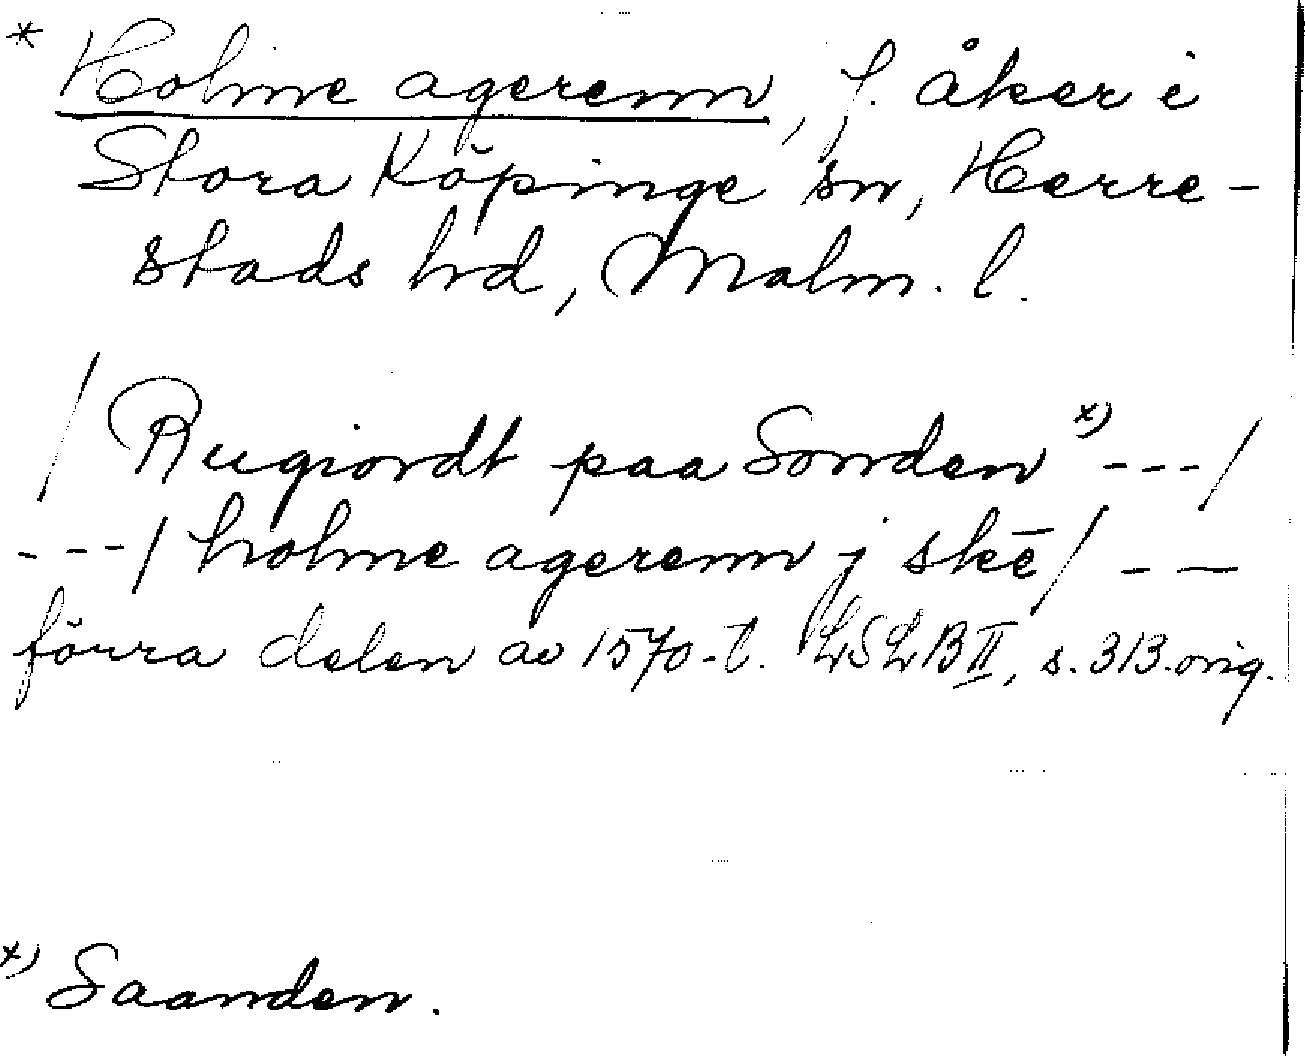 * Holme agerenn, f. åker i
Stora Köpinge sn, Herre-
stads hd, Malm. l.
/ Rugiordt paa Sonnden x) --- /
--- / holme agerenn j skē / --
förra delen av 1570-t. LSLB II, s. 313. orig.
x) Saanden.